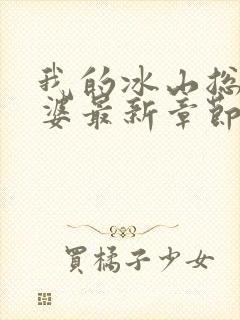 我的冰山总
婆最新章節
買橘子少女